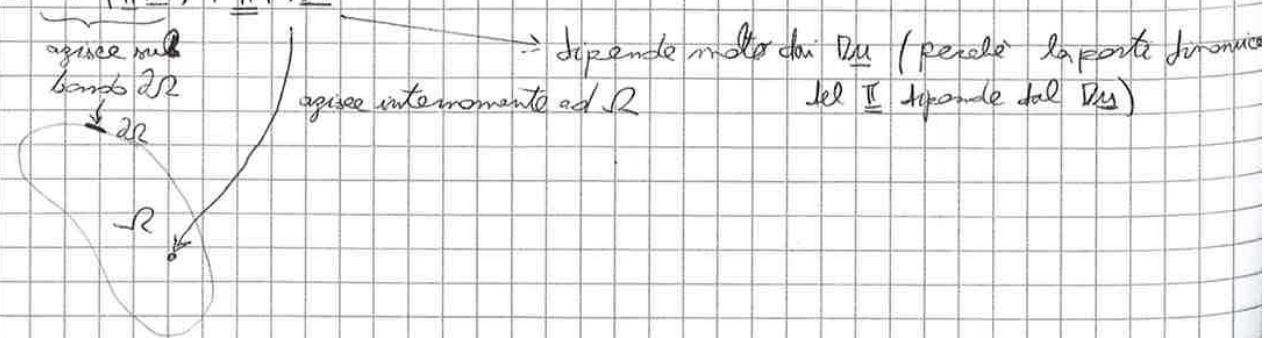 agisce sul
bordo ∂Ω
∂Ω
Ω
agisce internamente ad Ω
dipende molto dai D<u>u</u> (perché la parte dinamica
del <u>II</u> dipende dal D<u>u</u>)